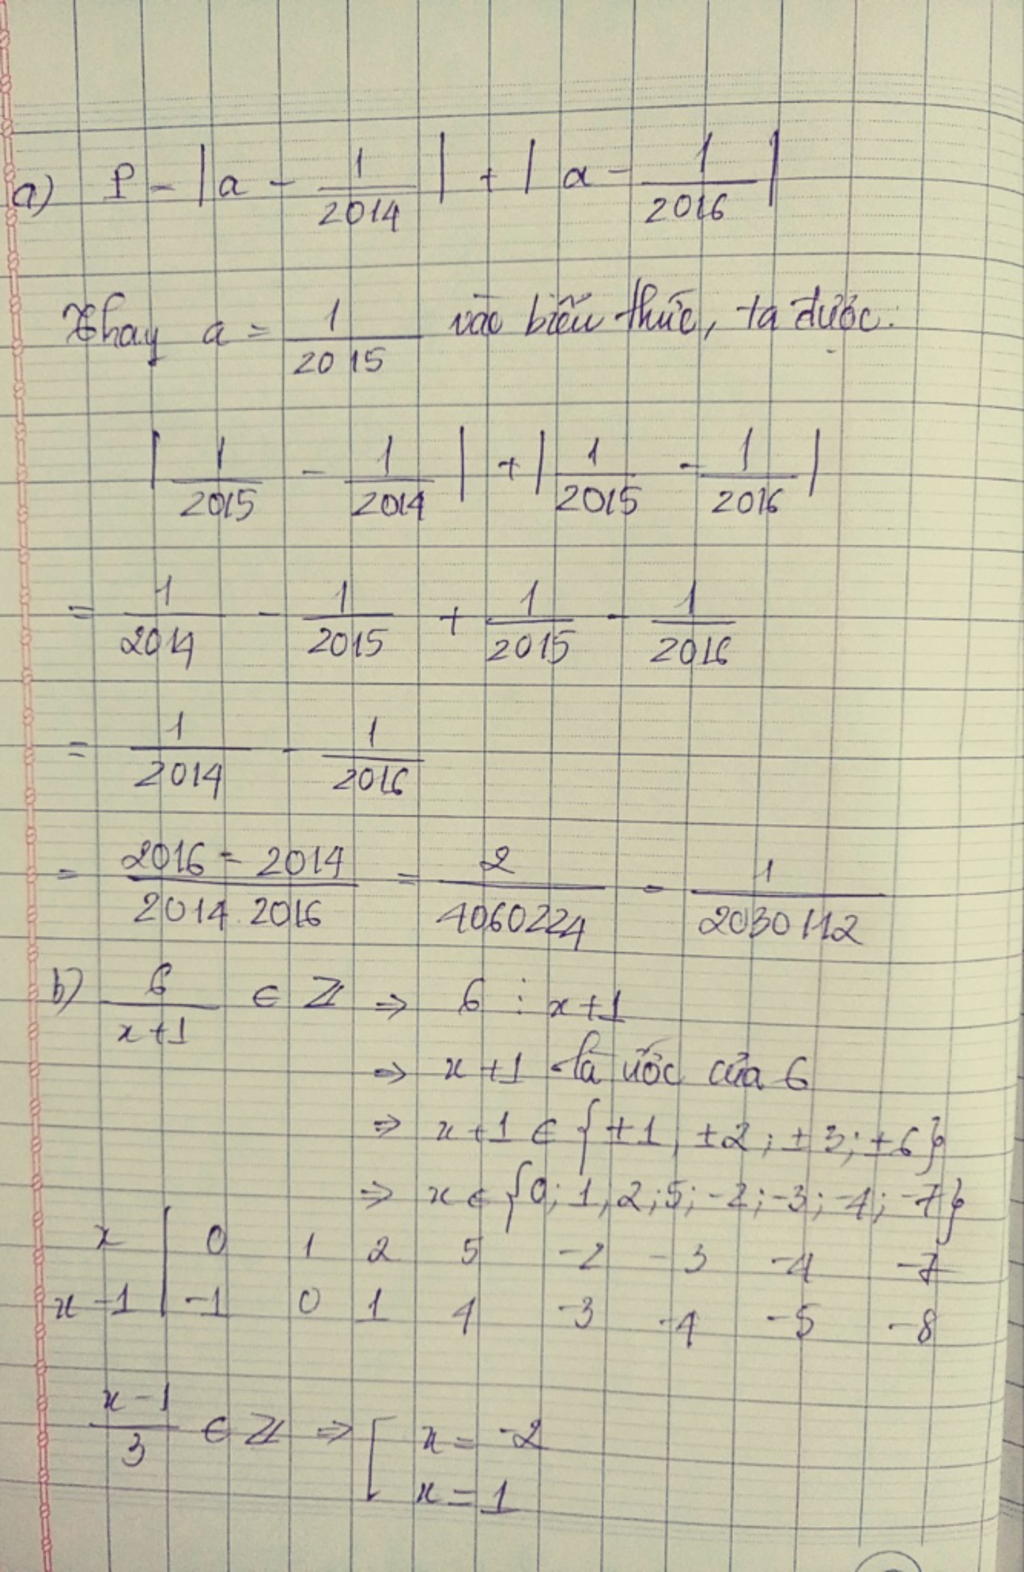 a) P = |a - 1/2014| + |a - 1/2016|
Thay a = 1/2015 vào biểu thức, ta được:
|1/2015 - 1/2014| + |1/2015 - 1/2016|
= 1/2014 - 1/2015 + 1/2015 - 1/2016
= 1/2014 - 1/2016
= (2016 - 2014)/(2014.2016) = 2/4060224 = 1/2030112
b) 6/(x+1) ∈ Z ⇒ 6 ⋮ x+1
⇒ x+1 là ước của 6
⇒ x+1 ∈ {±1; ±2; ±3; ±6}
⇒ x ∈ {0; 1; 2; 5; -2; -3; -4; -7}
x | 0 1 2 5 -2 -3 -4 -7
x-1 | -1 0 1 4 -3 -4 -5 -8
(x-1)/3 ∈ Z ⇒ [ x = -2
x = 1